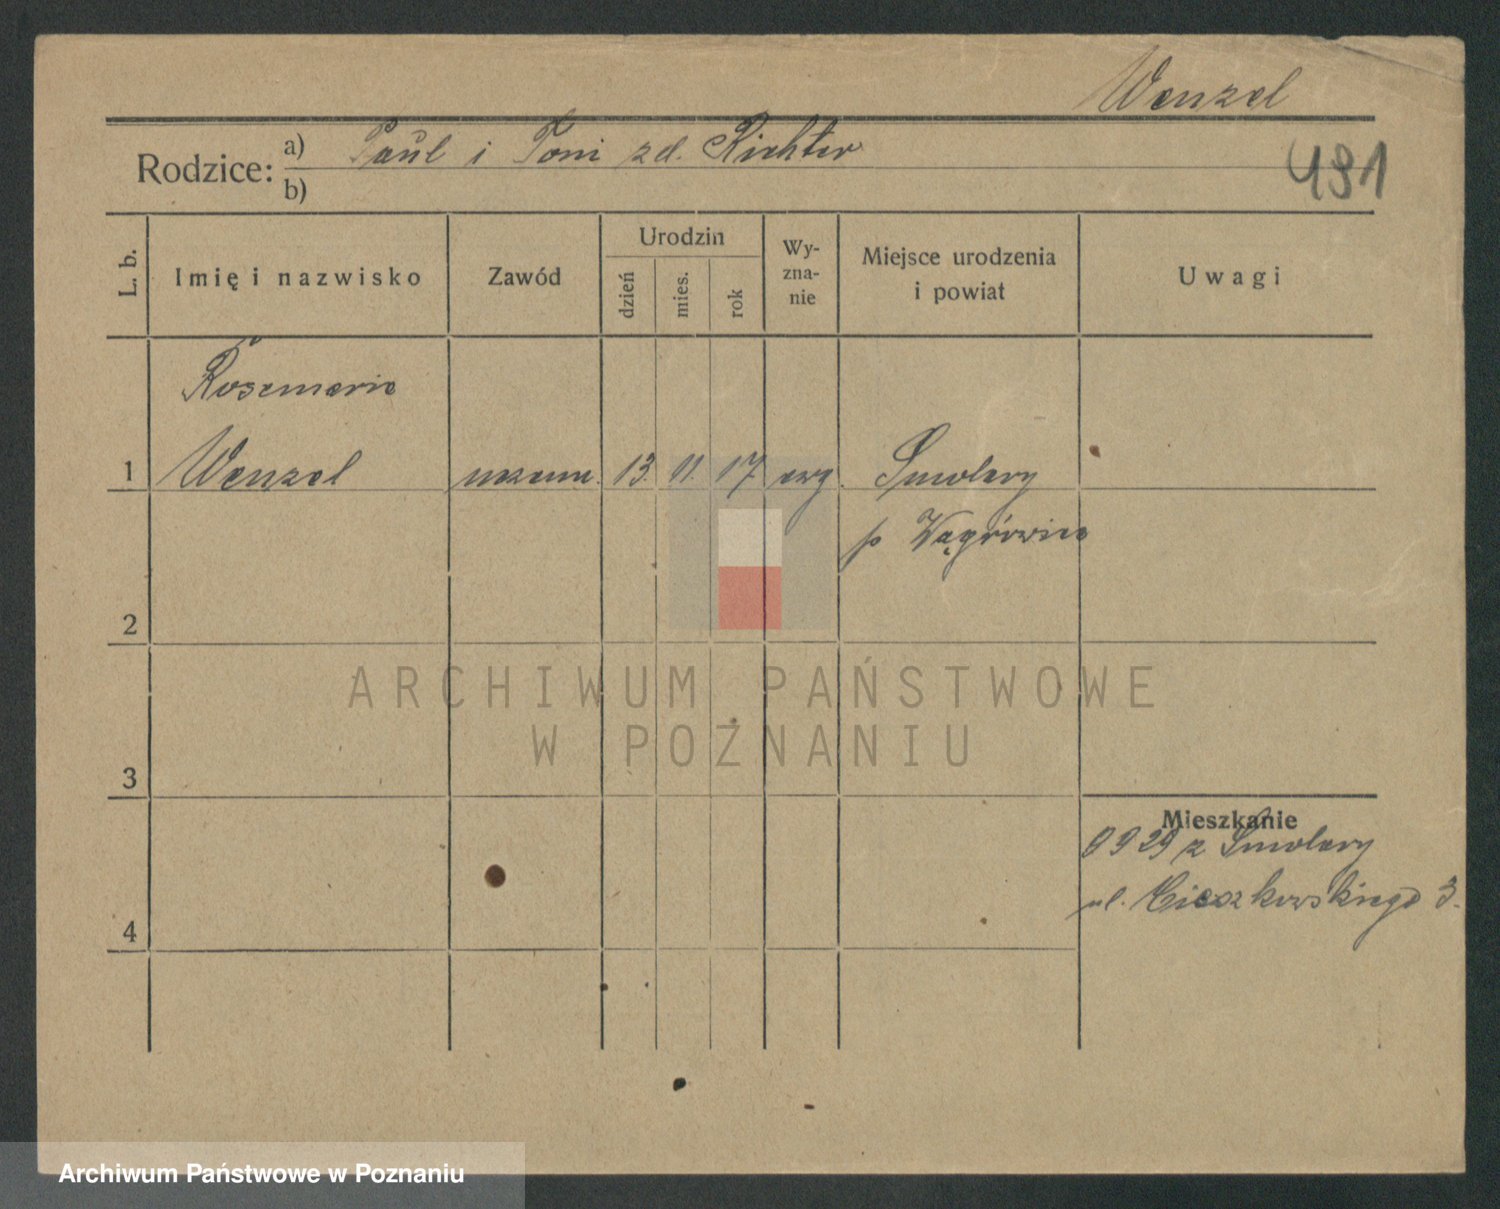 Wenzel
Rodzice: a) Paul i Toni zd. Richter
b)
491
L. b.
Imię i nazwisko
Zawód
Urodzin
dzień
mies.
rok
Wy-
zna-
nie
Miejsce urodzenia
i powiat
Uwagi
Rosemarie
1 Wenzel uczenn. 13. 11. 17 ewg. Smolary
p Wągrowiec
2
3
4
Mieszkanie
0929 z Smolary
ul. Cieszkowskiego 3.
ARCHIWUM PAŃSTWOWE
W POZNANIU
Archiwum Państwowe w Poznaniu